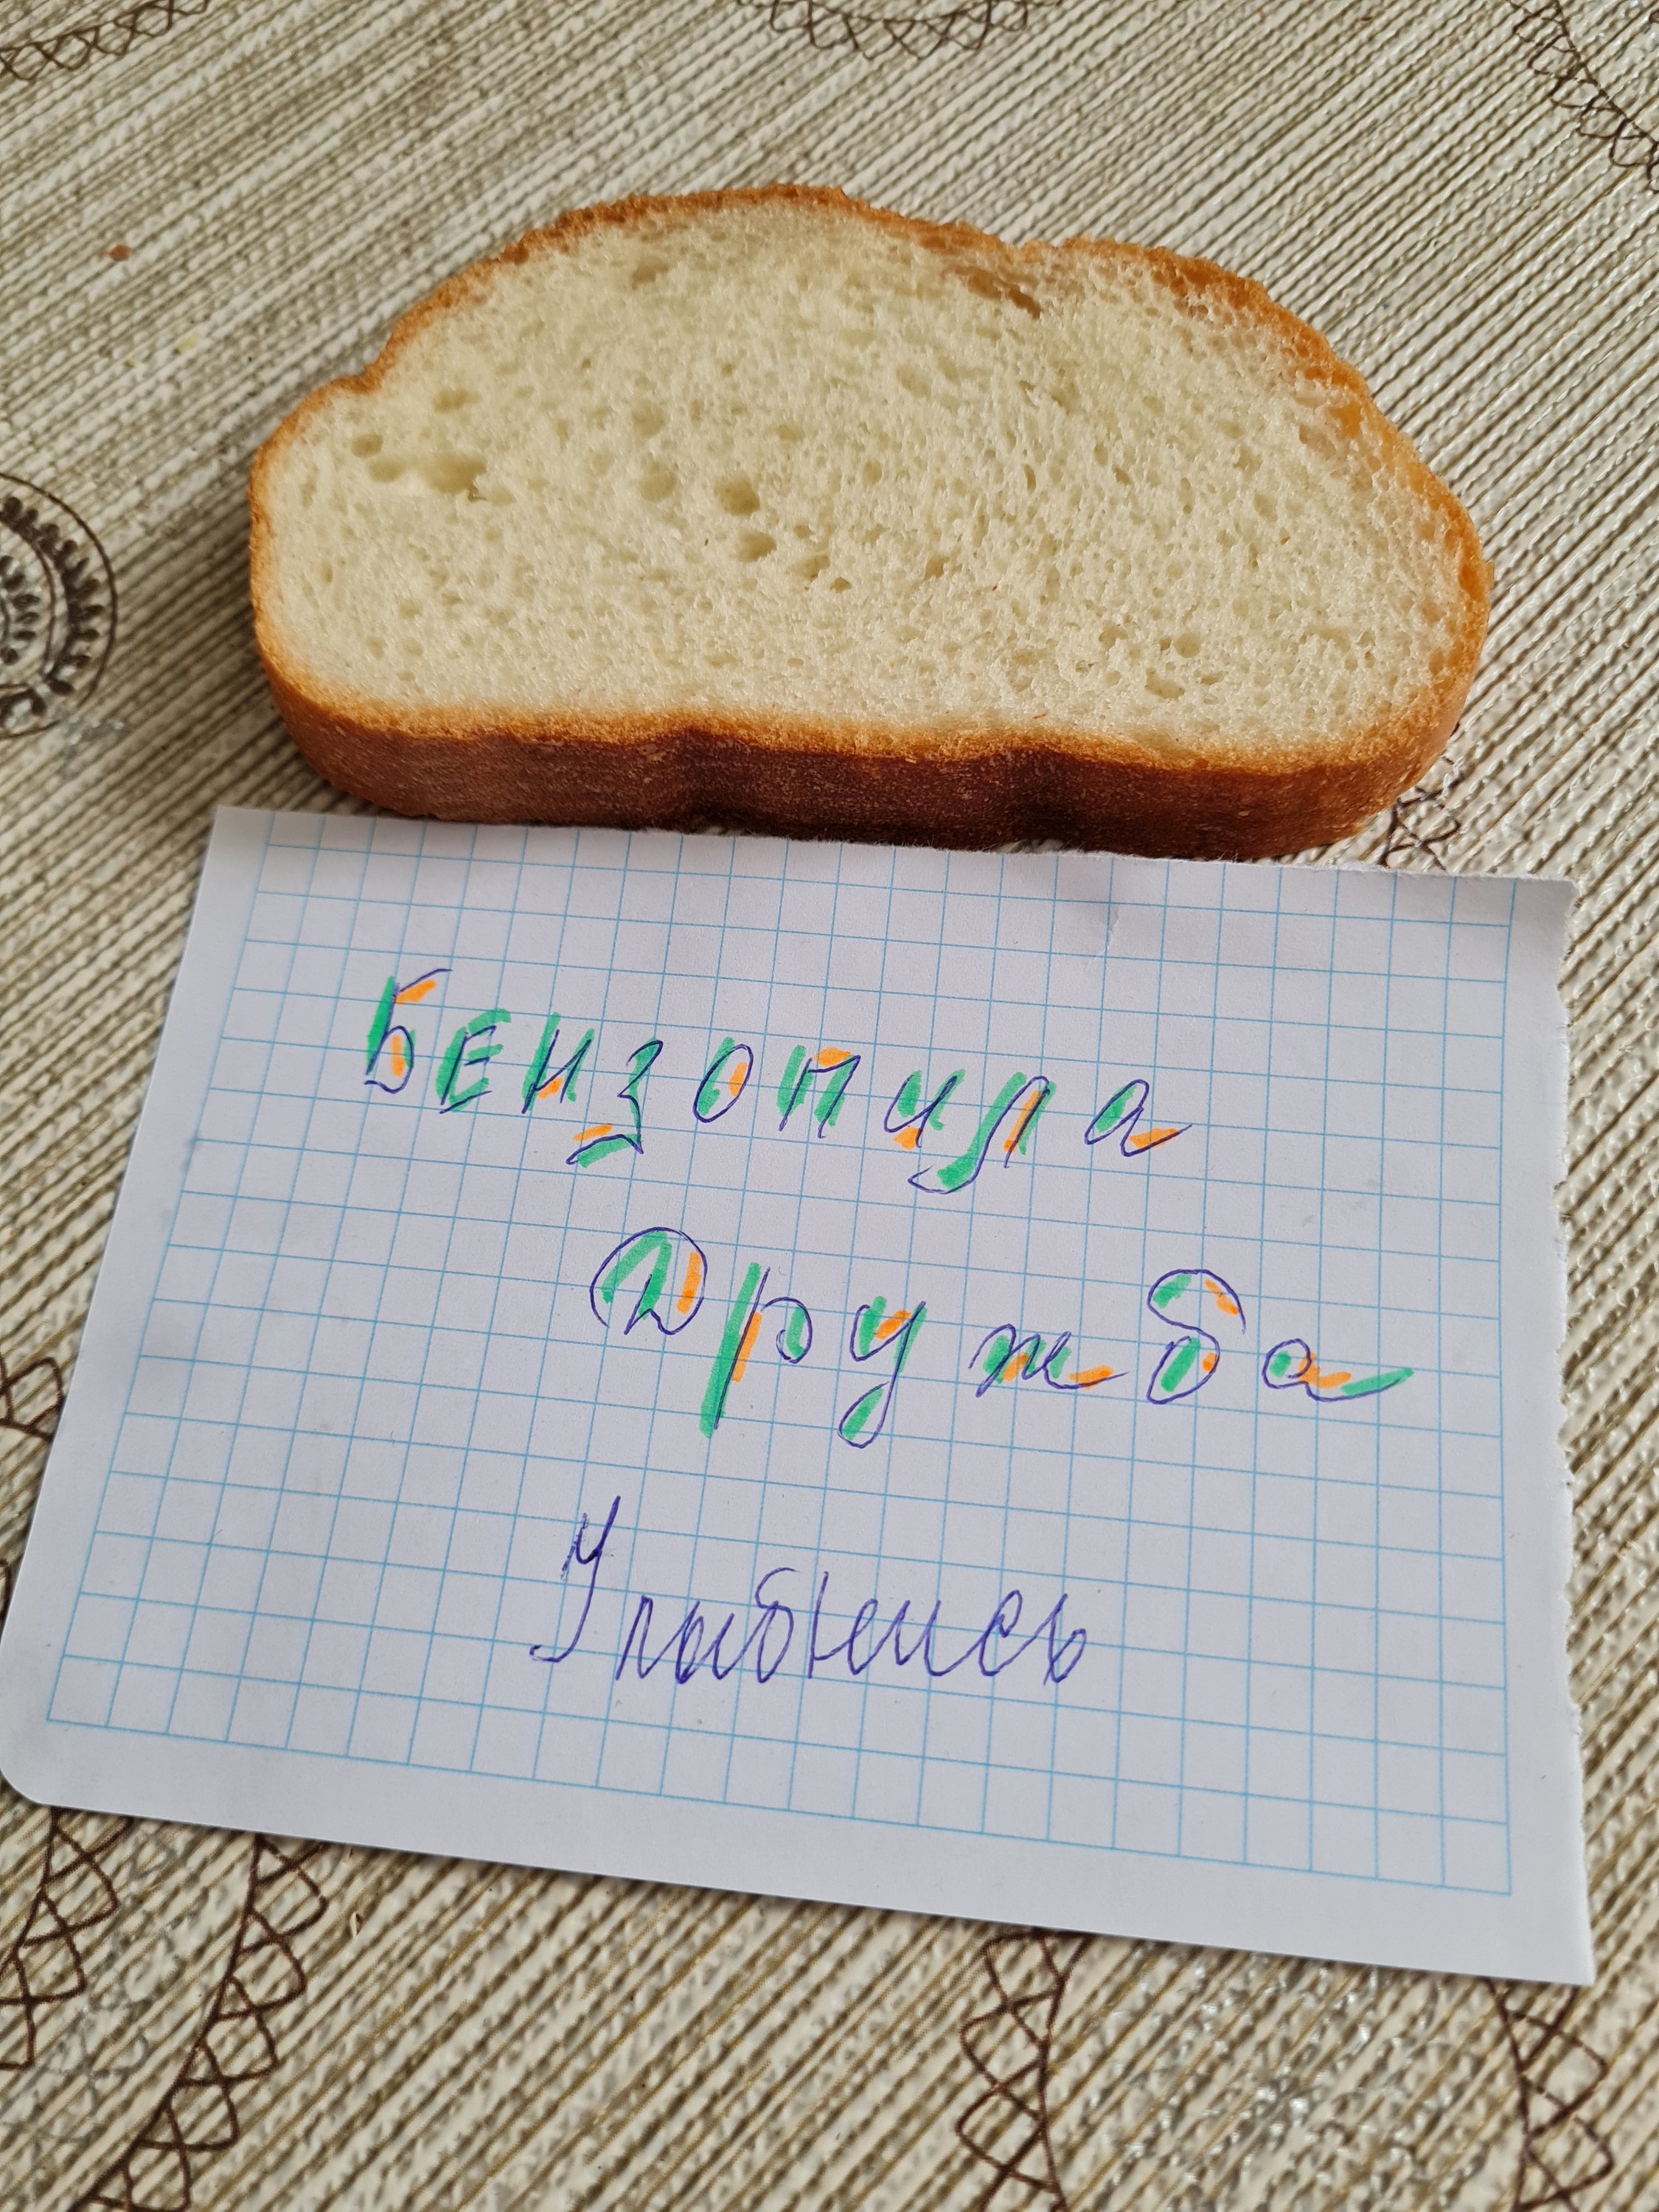 Бензопила
Дружба
Улыбнись